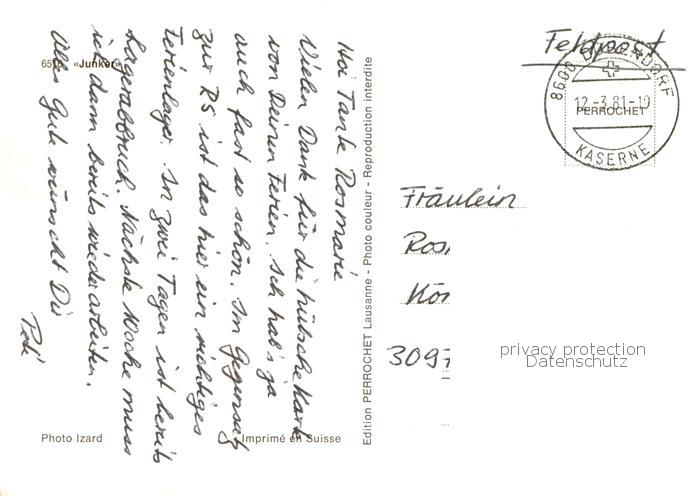 Hoi Tante Rosmarie
Vielen Dank für die hübsche Karte
von Deinen Ferien. Ich hab's ja
auch fast so schön. Im Gegensatz
zur RS ist das hier ein richtiges
Ferienlager. In zwei Tagen ist bereits
Lagerabbruch. Nächste Woche muss
ich dann bereits wieder arbeiten.
Alles Gute wünscht Dir
6516 «Junker»
Photo Izard
Imprimé en Suisse
Edition PERROCHET Lausanne - Photo couleur - Reproduction interdite
Feldpost
8600 DÜBENDORF
12.-3.81-19
KASERNE
PERROCHET
Fräulein
Ros
309
privacy protection
Datenschutz